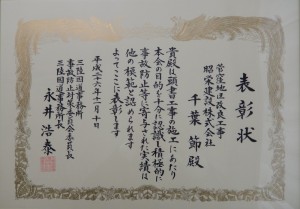 表彰状
菅窪地区改良工事
昭栄建設株式会社
千葉 節殿
貴殿は頭書工事の施工にあたり
本会の目的を十分に認識し積極的に
事故防止等に寄与された実績は
他の模範と認められます
よってここに表彰します
平成二十六年十一月十日
三陸国道事務所
事故防止対策委員会委員長
三陸国道事務所長
永井浩泰